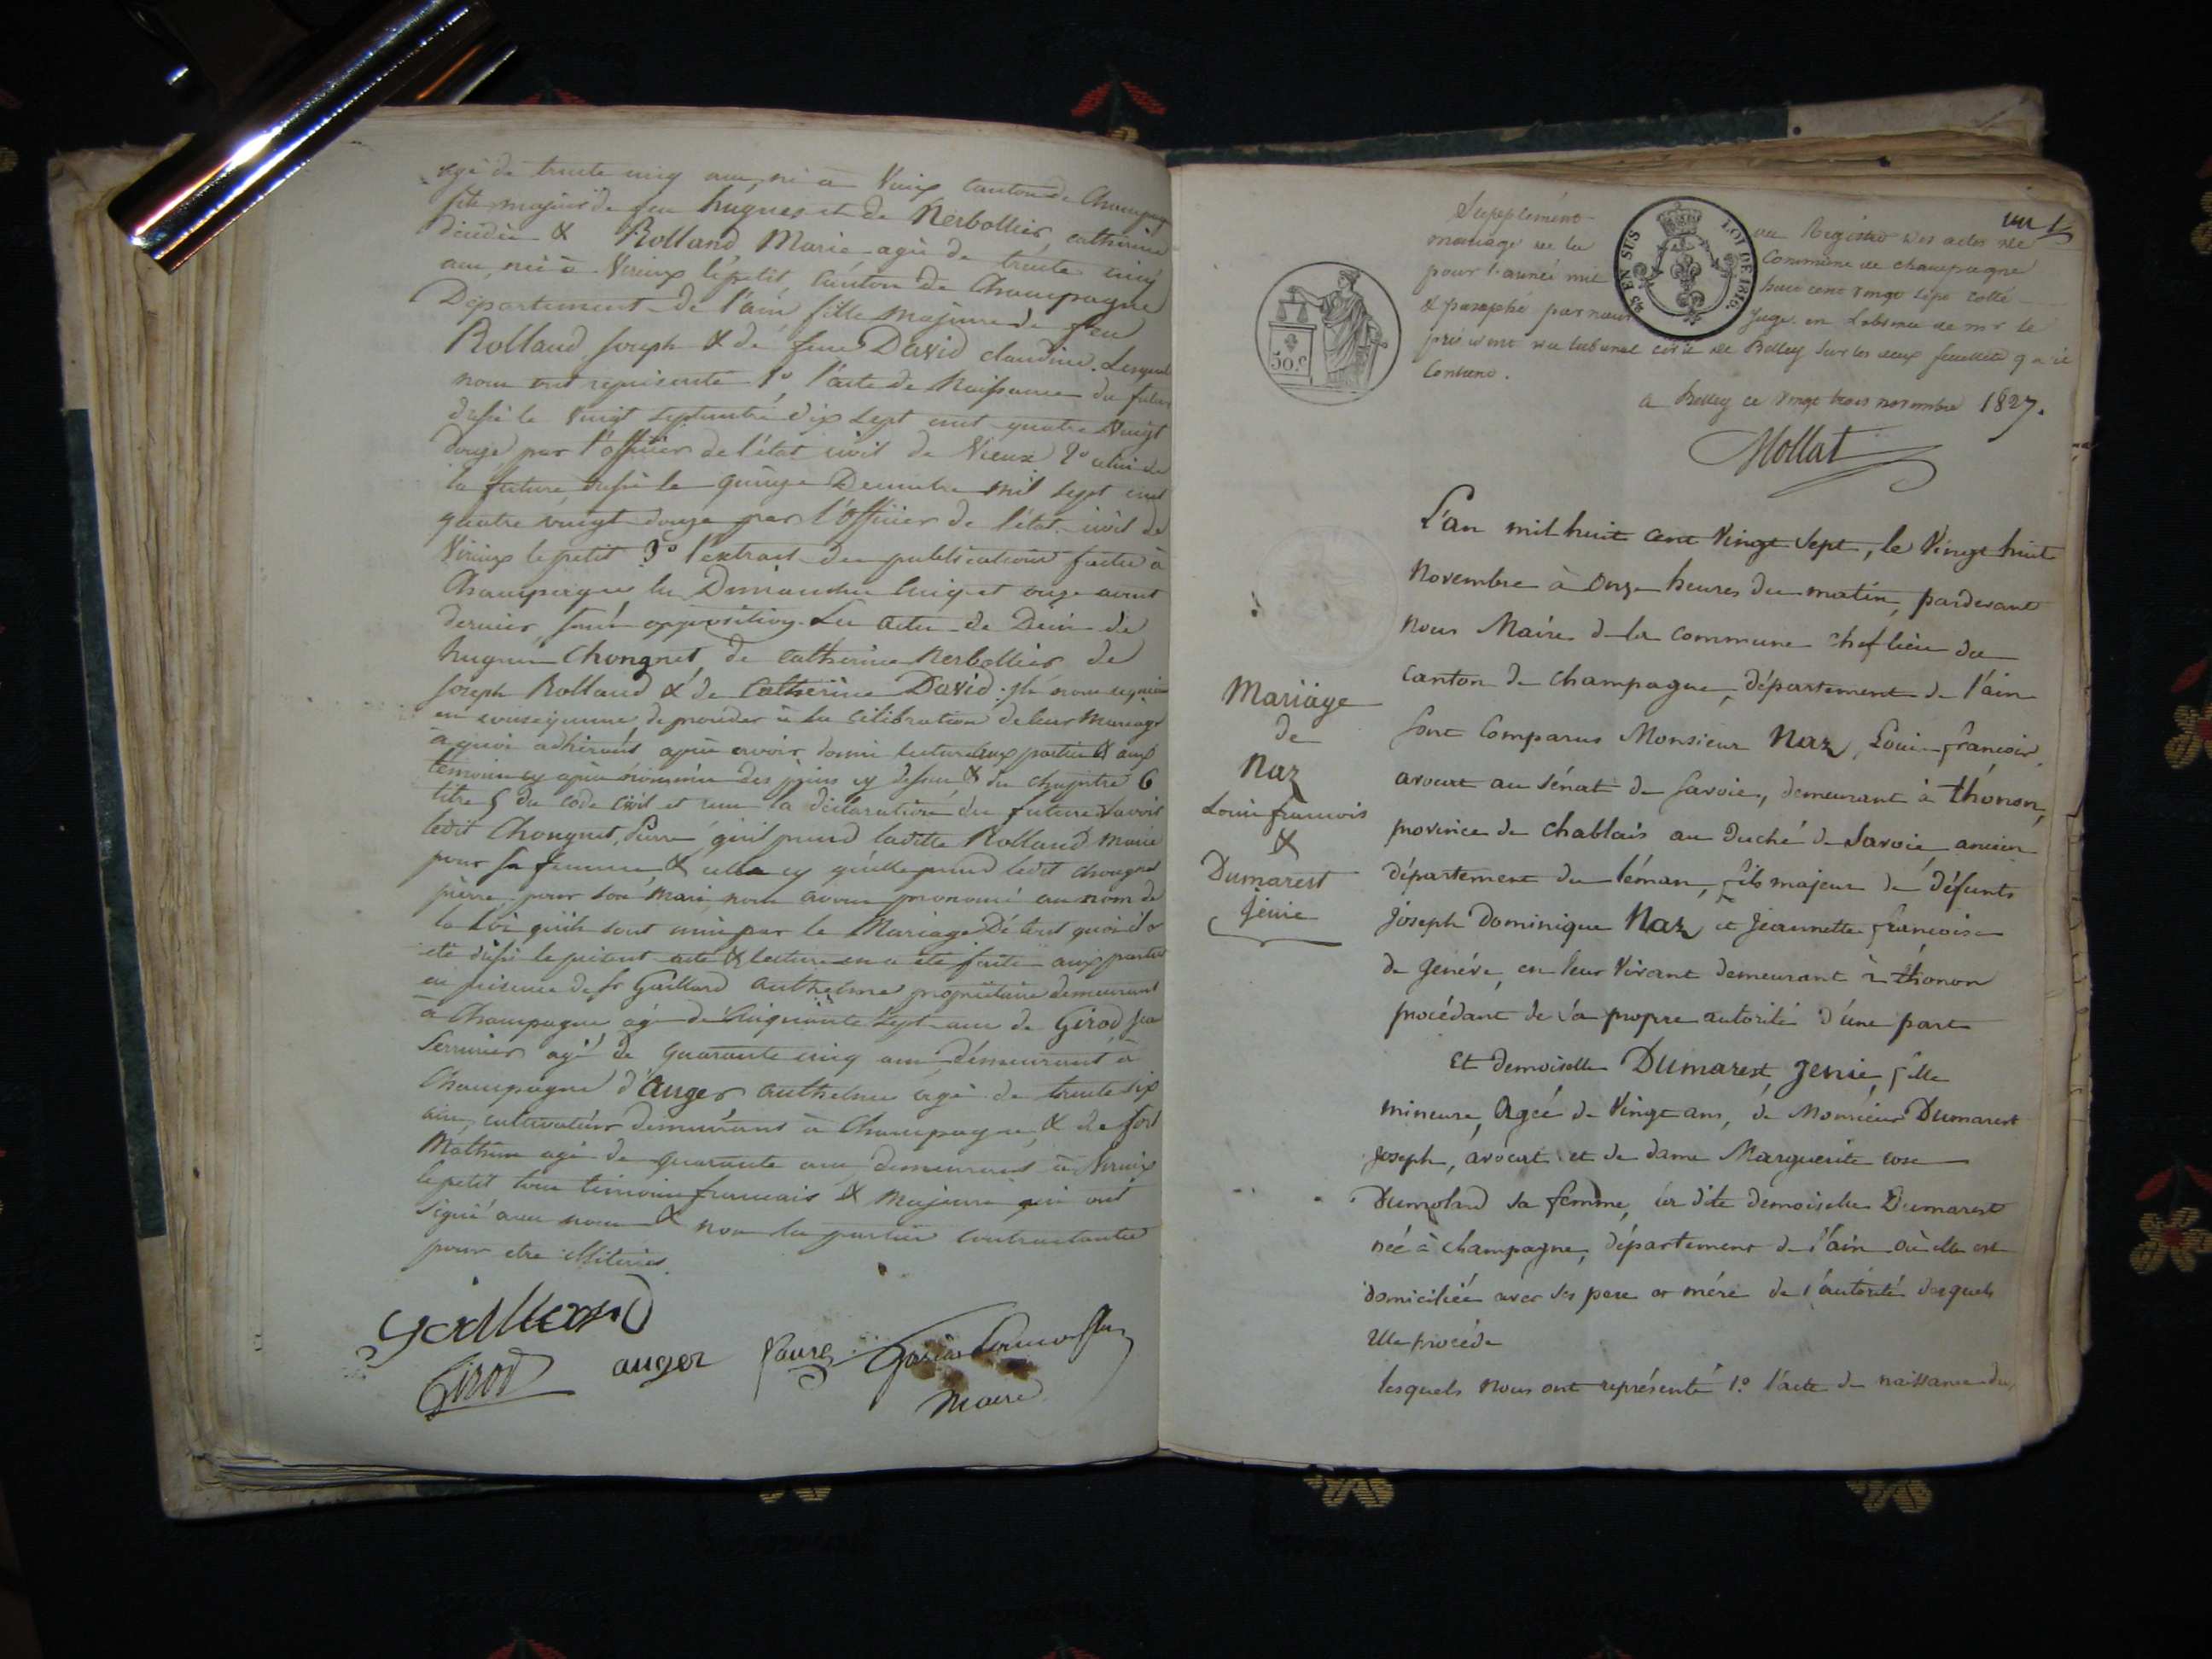 agé de trente cinq ans, né à Vieux canton de Champagne
fils majeur de feu hugues et de Nerbollier, catherine
décédée & Rolland Marie agée de trente cinq
ans, née à Virieux le petit, canton de Champagne
Département de l'ain fille majeure de feu
Rolland Joseph & de feue David claudine. Lesquels
nous ont représenté 1º l'acte de Naissance du futur
dressé le vingt septembre dix sept cent quatre vingt
douze par l'officier de l'état civil de Vieux 2º celui de
la future dressé le quinze Decembre mil sept cent
quatre vingt douze par l'Officier de l'état civil de
Virieux le petit 3º l'extrait des publications faites à
Champagne les Dimanches cinq et onze
dernier, sans opposition. Les actes de Decès de
hugues Chongnet, de catherine Nerbollier de
Joseph Rolland & de Catherine David.
en conséquence, de proceder à la célébration de leur Mariage
à quoi adhérant après avoir donné lecture aux parties & aux
temoins cy après des pièces cy dessus & du chapitre 6
titre 5 du code civil et reçu la déclaration des futurs savoir
ledit Chongnet, Pierre qu'il prend laditte Rolland marie
pour sa femme, & celle cy qu'elle prend ledit chongnet
pierre pour son mari, nous avons prononcé au nom de
la Loi qu'ils sont unis par le Mariage De tout quoi il a
été dressé le présent acte & lecture en a été faite aux parties
en présence de sr Gaillard authelme propriétaire demeurant
à Champagne agé de Cinquante sept ans de Girod
Serrurier agé de quarante cinq ans demeurant à
Champagne d'auger authelme agé de trente six
ans, cultivateur demeurant à Champagne, & de
Mathieu agé de quarante ans demeurant à Virieux
le petit tous temoins francais & majeurs qui ont
signé avec nous & non les parties contractantes
pour etre illiterées.
Gaillard
Girod auger
Maire
un
Supplément au Registre des actes de
mariage de la Commune de champagne
pour l'année mil huit cent vingt sept coté
& paraphé par nous Juge en l'absence de mr le
président du tribunal civil de Belley sur les deux feuillets qu'il
contient.
a Belley ce vingt trois novembre 1827.
Mollat
25 EN SUS LOI DE 1816.
50.C
L'an mil huit cent vingt sept, le vingt huit
Novembre à onze heures du matin, pardevant
nous Maire de la commune chef lieu du
canton de champagne, département de l'ain
sont comparus Monsieur Naz, Louis françois,
avocat au sénat de Savoie, demeurant à thonon,
province de chablais au Duché de Savoie ancien
département du léman, fils majeur de défunts
joseph Dominique Naz et jeannette françoise
de genéve, en leur vivant demeurant à thonon
procédant de sa propre autorité d'une part
Mariage
de
Naz
Louis francois
&
Dumarest
Jenie
Et demoiselle Dumarest, Jenie, fille
mineure, Agée de vingt ans, de Monsieur Dumarest
joseph, avocat et de dame Marguerite
Dumolard sa femme, la dite demoiselle Dumarest
née à champagne, département de l'ain où elle est
domiciliée avec ses pere et mére de l'autorité desquels
Elle procéde
lesquels nous ont représenté 1º l'acte de naissance du